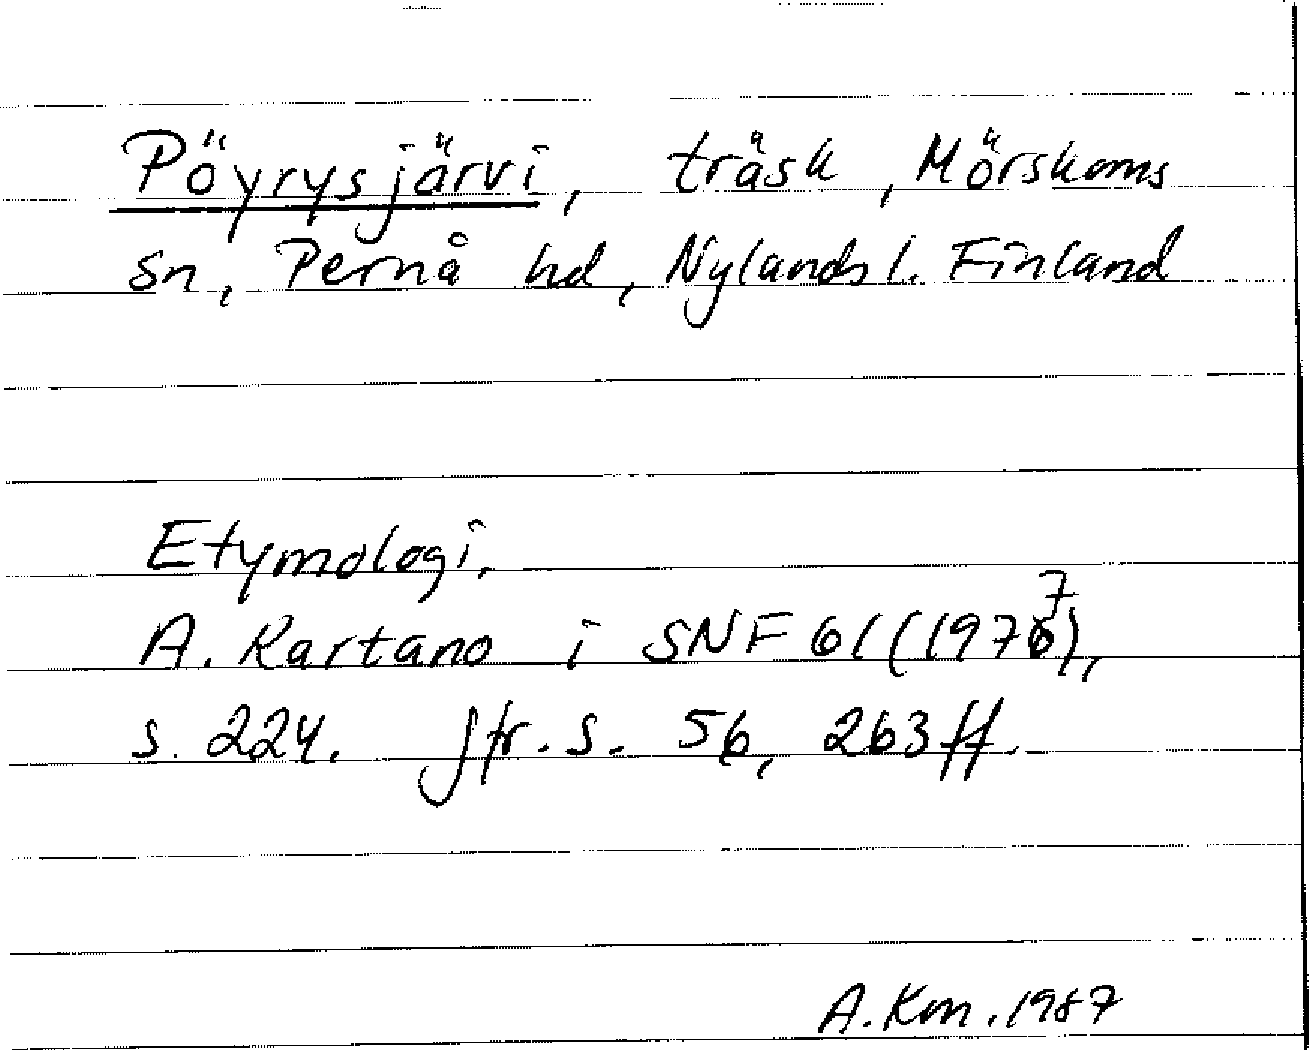 Pöyrysjärvi, träsk, Mörskoms
sn, Pernå hd, Nylands l. Finland
Etymologi.
A. Kartano i SNF 61 (1977),
s. 224. Jfr. s. 56, 263 ff.
A. Km. 1987